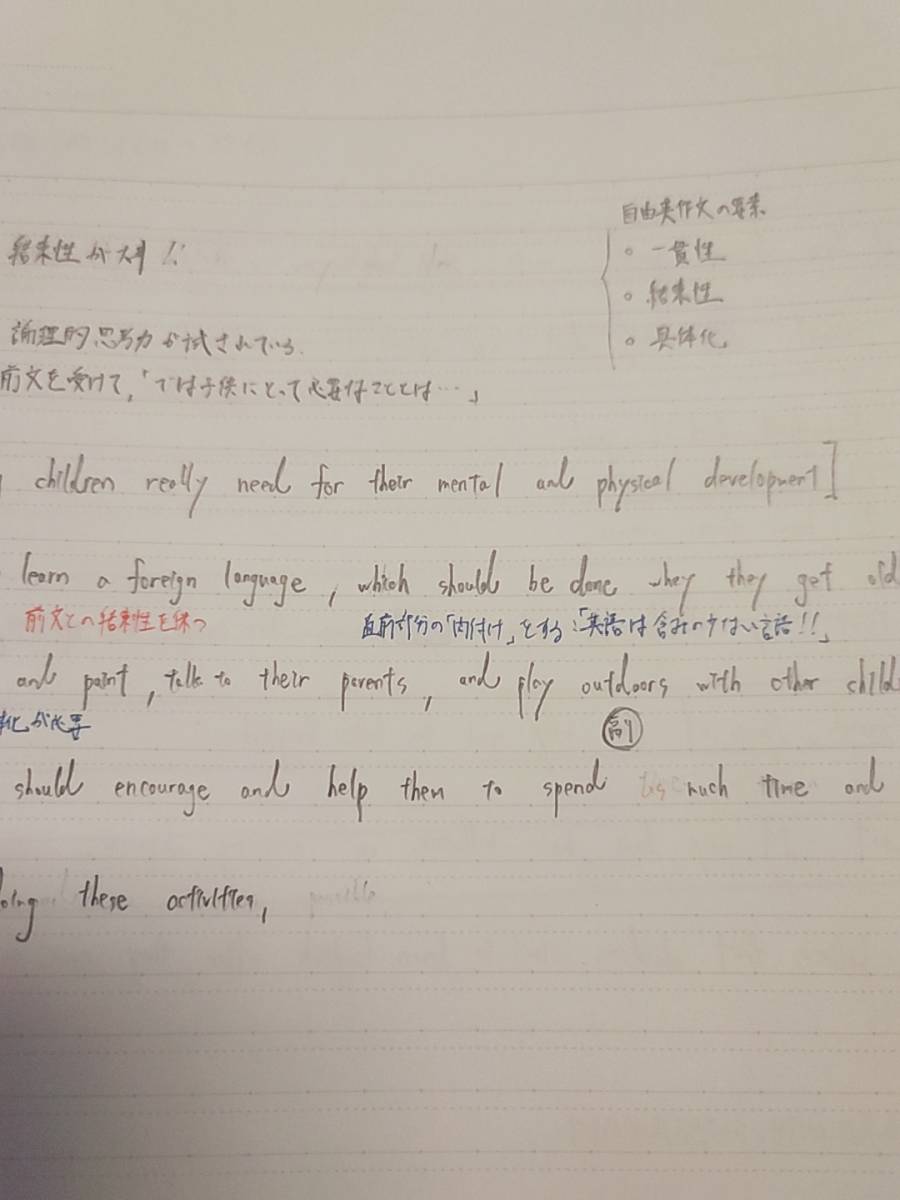 自由英作文の要素
。一貫性
結束性が大事!!
。結束性
論理的思考力が試されている。
。具体化
前文を受けて、「では子供にとって必要なこととは…」
children really need for their mental and physical development]
learn a foreign language, which should be done whey they get old
前文との結束性を保つ
直前部分の「肉付け」をする:「英語は含みの少ない言語!!」
and paint, talk to their parents, and play outdoors with other child
化が必要
副
should encourage and help them to spend as much time and
oing these activities,